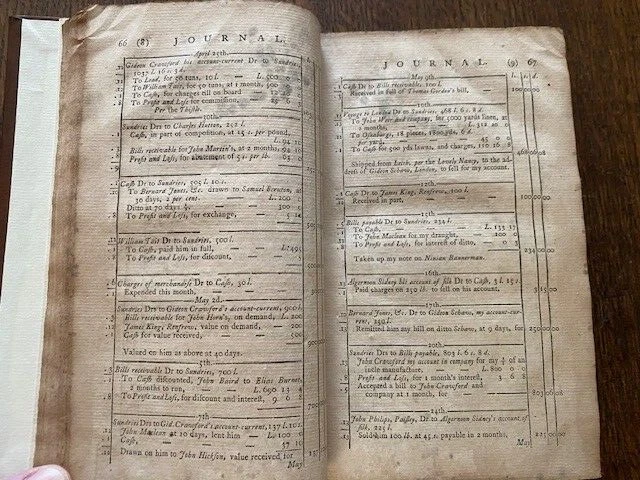 66 (8) JOURNAL.
April 25th.
Gideon Crawford his account-current Dr to Sundries,
1037 l. 16 s. 3 d.
To Lead, for 50 tons, 10 l. — L. 500 0 0
To William Tait, for 50 tons, at 1 month, 500
To Cash, for charges till on board —
To Profit and Loss for commission,
Per the Thistle.
Sundries Drs to Charles Horton, 252 l.
Cash, in part of composition, at 15 s. per pound,
L. 94 10
Bills receivable for John Martin's, at 2 months, 94 10
Profit and Loss, for abatement of 5 s. per lib. 63 0
Cash Dr to Sundries, 505 l. 10 s.
To Bernard Jones, &c. drawn to Samuel Brunton, at
30 days, 2 per cent. — L. 200 0
Ditto at 70 days — 300 0
To Profit and Loss, for exchange, 5 10
William Tait Dr to Sundries, 500 l.
To Cash, paid him in full, — L. 495
To Profit and Loss, for discount,
Charges of merchandise Dr to Cash, 30 l.
Expended this month,
May 2d.
Sundries Drs to Gideon Crawford's account-current, 900 l.
Bills receivable for John Horn's, on demand, L. 200
James King, Renfrew, value on demand, — 200
Cash for value received, — 500
Valued on him as above at 40 days.
5th.
Bills receivable Dr to Sundries, 700 l.
To Cash discounted, John Baird to Elias Burnet,
2 months to run, — L. 690 13 4
To Profit and Loss, for discount and interest, 9 6 8
7th.
Sundries Drs to Gid. Crawford's account-current, 137 l. 10 s.
John Maclean at 10 days, lent him — L. 100 0
Cash, — 37 10
Drawn on him to John Hickson, value received for
May
JOURNAL. (9) 67
May 9th. l. s. d.
Cash Dr to Bills receivable, 100 l.
Received in full of Thomas Gordon's bill, — 100 0 0
10th.
Voyage to London Dr to Sundries, 468 l. 6 s. 8 d.
To John Weir and company, for 5000 yards linen, at
2 months, — L. 312 10
To Osnaburgs, 18 pieces, 1800 yds. 6 d.
per yard, — 45 0
To Cash for 500 yds lawns, and charges, 110 16 8
468 06 08
Shipped from Leith, per the Lovely Nancy, to the address
of Gideon Schaw, London, to sell for my account.
12th.
Cash Dr to James King, Renfrew, 100 l.
Received in part,
15th.
Bills payable Dr to Sundries, 234 l.
To Cash, — L. 133 17
To John Maclean for my draught, — 100 0
To Profit and Loss, for interest of ditto, — 0 3
234 00 00
Taken up my note on Ninian Bannerman.
16th.
Algernon Sidney his account of silk Dr to Cash, 3 l. 15 s.
Paid charges on 250 lb. to sell on his account,
3 15 00
17th.
Bernard Jones, &c. Dr to Gideon Schaw, my account-current,
250 l.
Remitted him my bill on ditto Schaw, at 9 days, for 250 00 00
20th.
Sundries Drs to Bills payable, 803 l. 6 s. 8 d.
John Crawford my account in company for my ⅓ of an
incle manufacture, — L. 800 0 0
Profit and Loss, for 1 month's interest, 3 6 8
Accepted a bill to John Crawford and
company at 1 month, for — 803 06 08
24th.
John Philips, Paisley, Dr to Algernon Sidney's account of
silk, 225 l.
Sold him 100 lb. at 45 s. payable in 2 months, 225 00 00
May